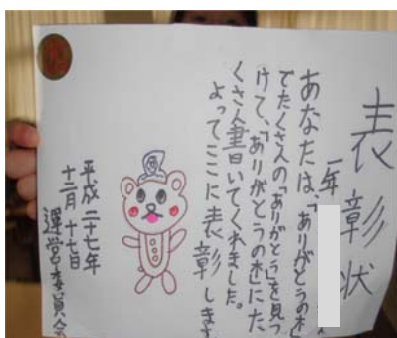 表彰状
一年
あなたは、「ありがとうの木」
でたくさんの「ありがとう」を見つ
けて、「ありがとうの木」にた
くさん書いてくれました。
よってここに表彰します
平成二十七年
十二月十七日
運営委員会